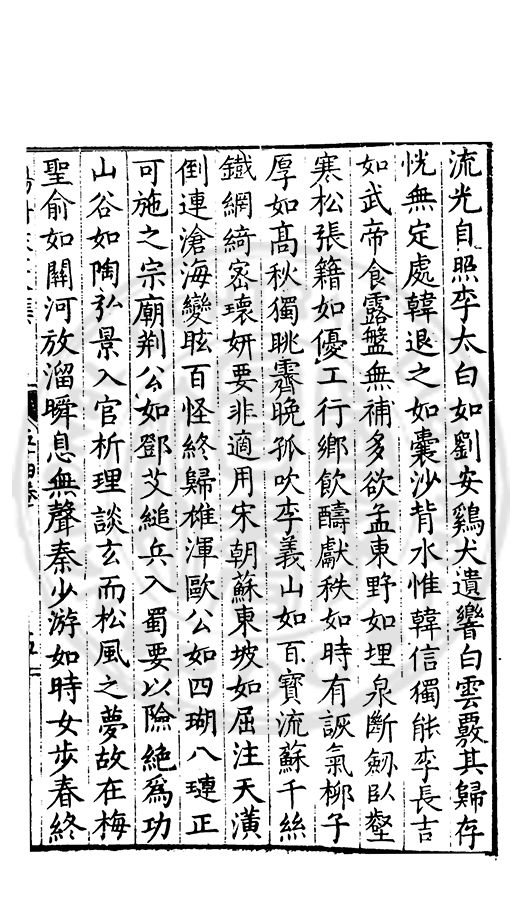 流光自照李太白如劉安鷄犬遺響白雲覈其歸存
恍無定處韓退之如囊沙背水惟韓信獨能李長吉
如武帝食露盤無補多欲孟東野如埋泉斷劒臥壑
寒松張籍如優工行鄉飲醻獻秩如時有詼氣柳子
厚如高秋獨眺霽晚孤吹李義山如百寶流蘇千絲
鐵網綺密瓌妍要非適用宋朝蘇東坡如屈注天潢
倒連滄海變眩百怪終歸雄渾歐公如四瑚八璉正
可施之宗廟荆公如鄧艾縋兵入蜀要以險絶爲功
山谷如陶弘景入官析理談玄而松風之夢故在梅
聖俞如關河放溜瞬息無聲秦少游如時女步春終